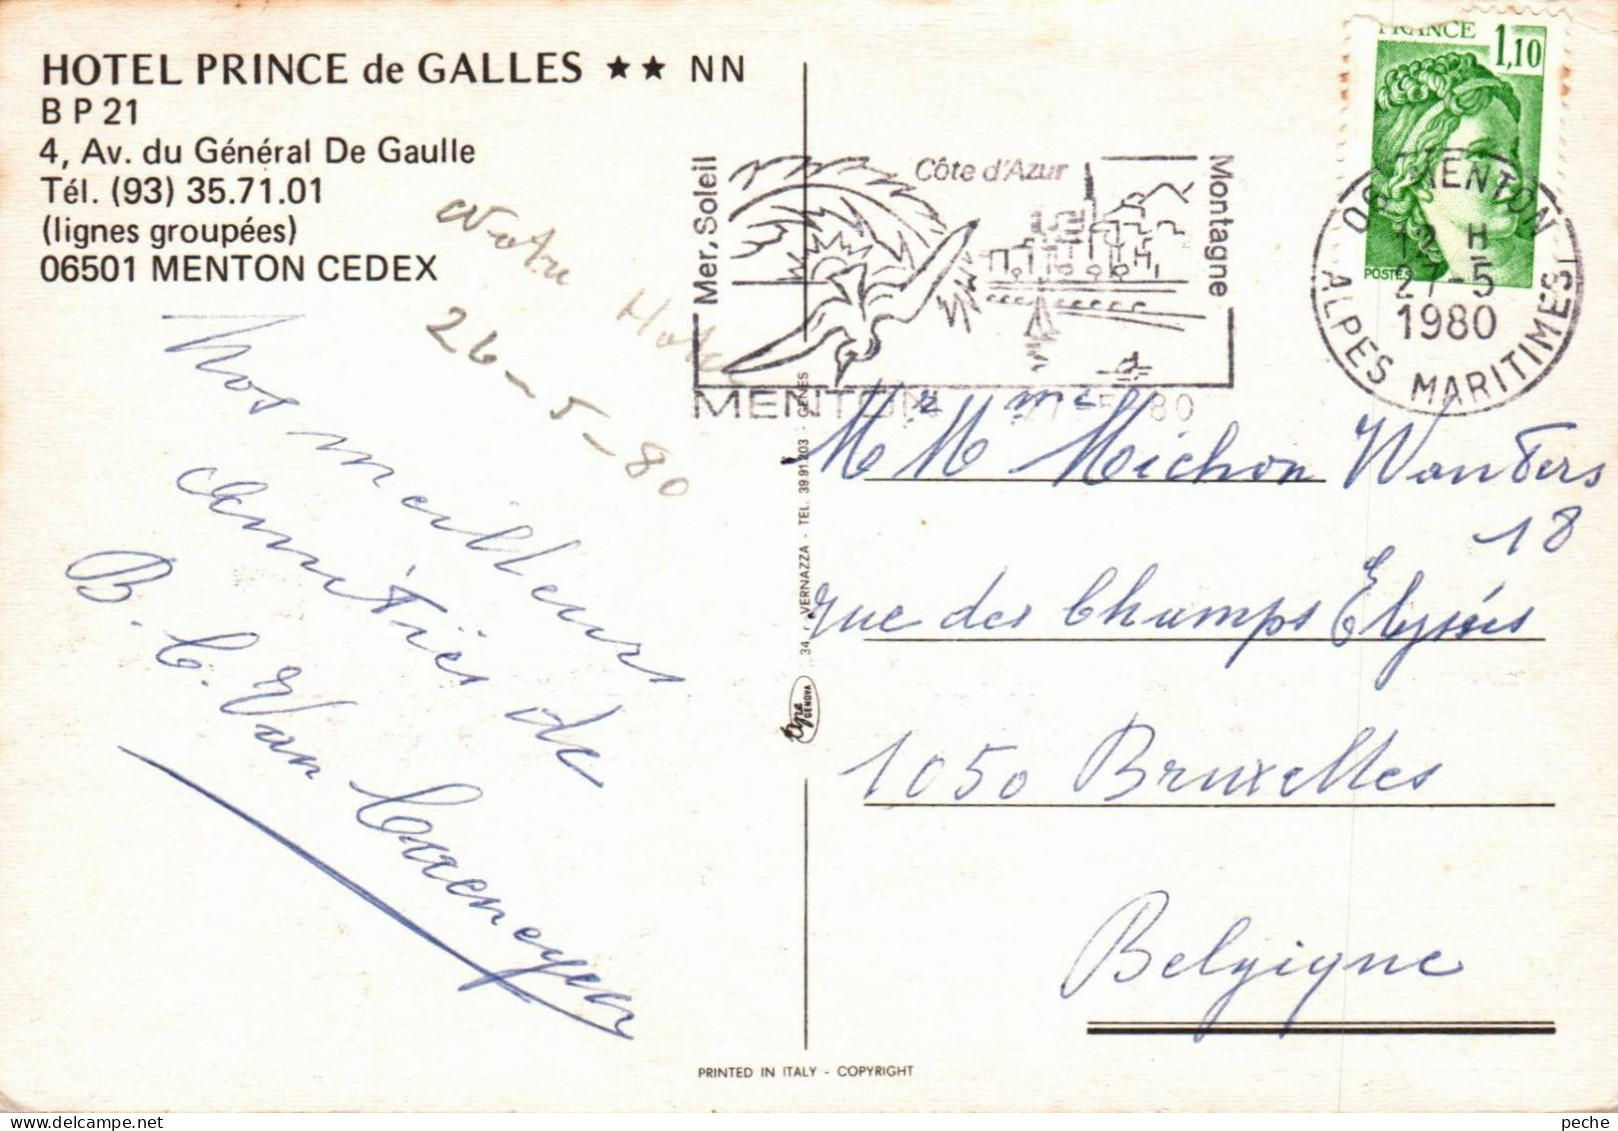 HOTEL PRINCE de GALLES ★★ NN
B P 21
4, Av. du Général De Gaulle
Tél. (93) 35.71.01
(lignes groupées)
06501 MENTON CEDEX
Notre Hotel
26-5-80
Nos meilleurs
amitiés de
B. C. Van
PRINTED IN ITALY - COPYRIGHT
34 r VERNAZZA - TEL. 39.91.203 - GENES
type GENOVA
Mer, Soleil
Côte d'Azur
Montagne
MENTON 27-5-80
FRANCE 1,10
POSTES
06 MENTON
12 H
27-5
1980
ALPES MARITIMES
Mr Mme Michon Wouters
18
rue des Champs Elysées
1050 Bruxelles
Belgique
peche